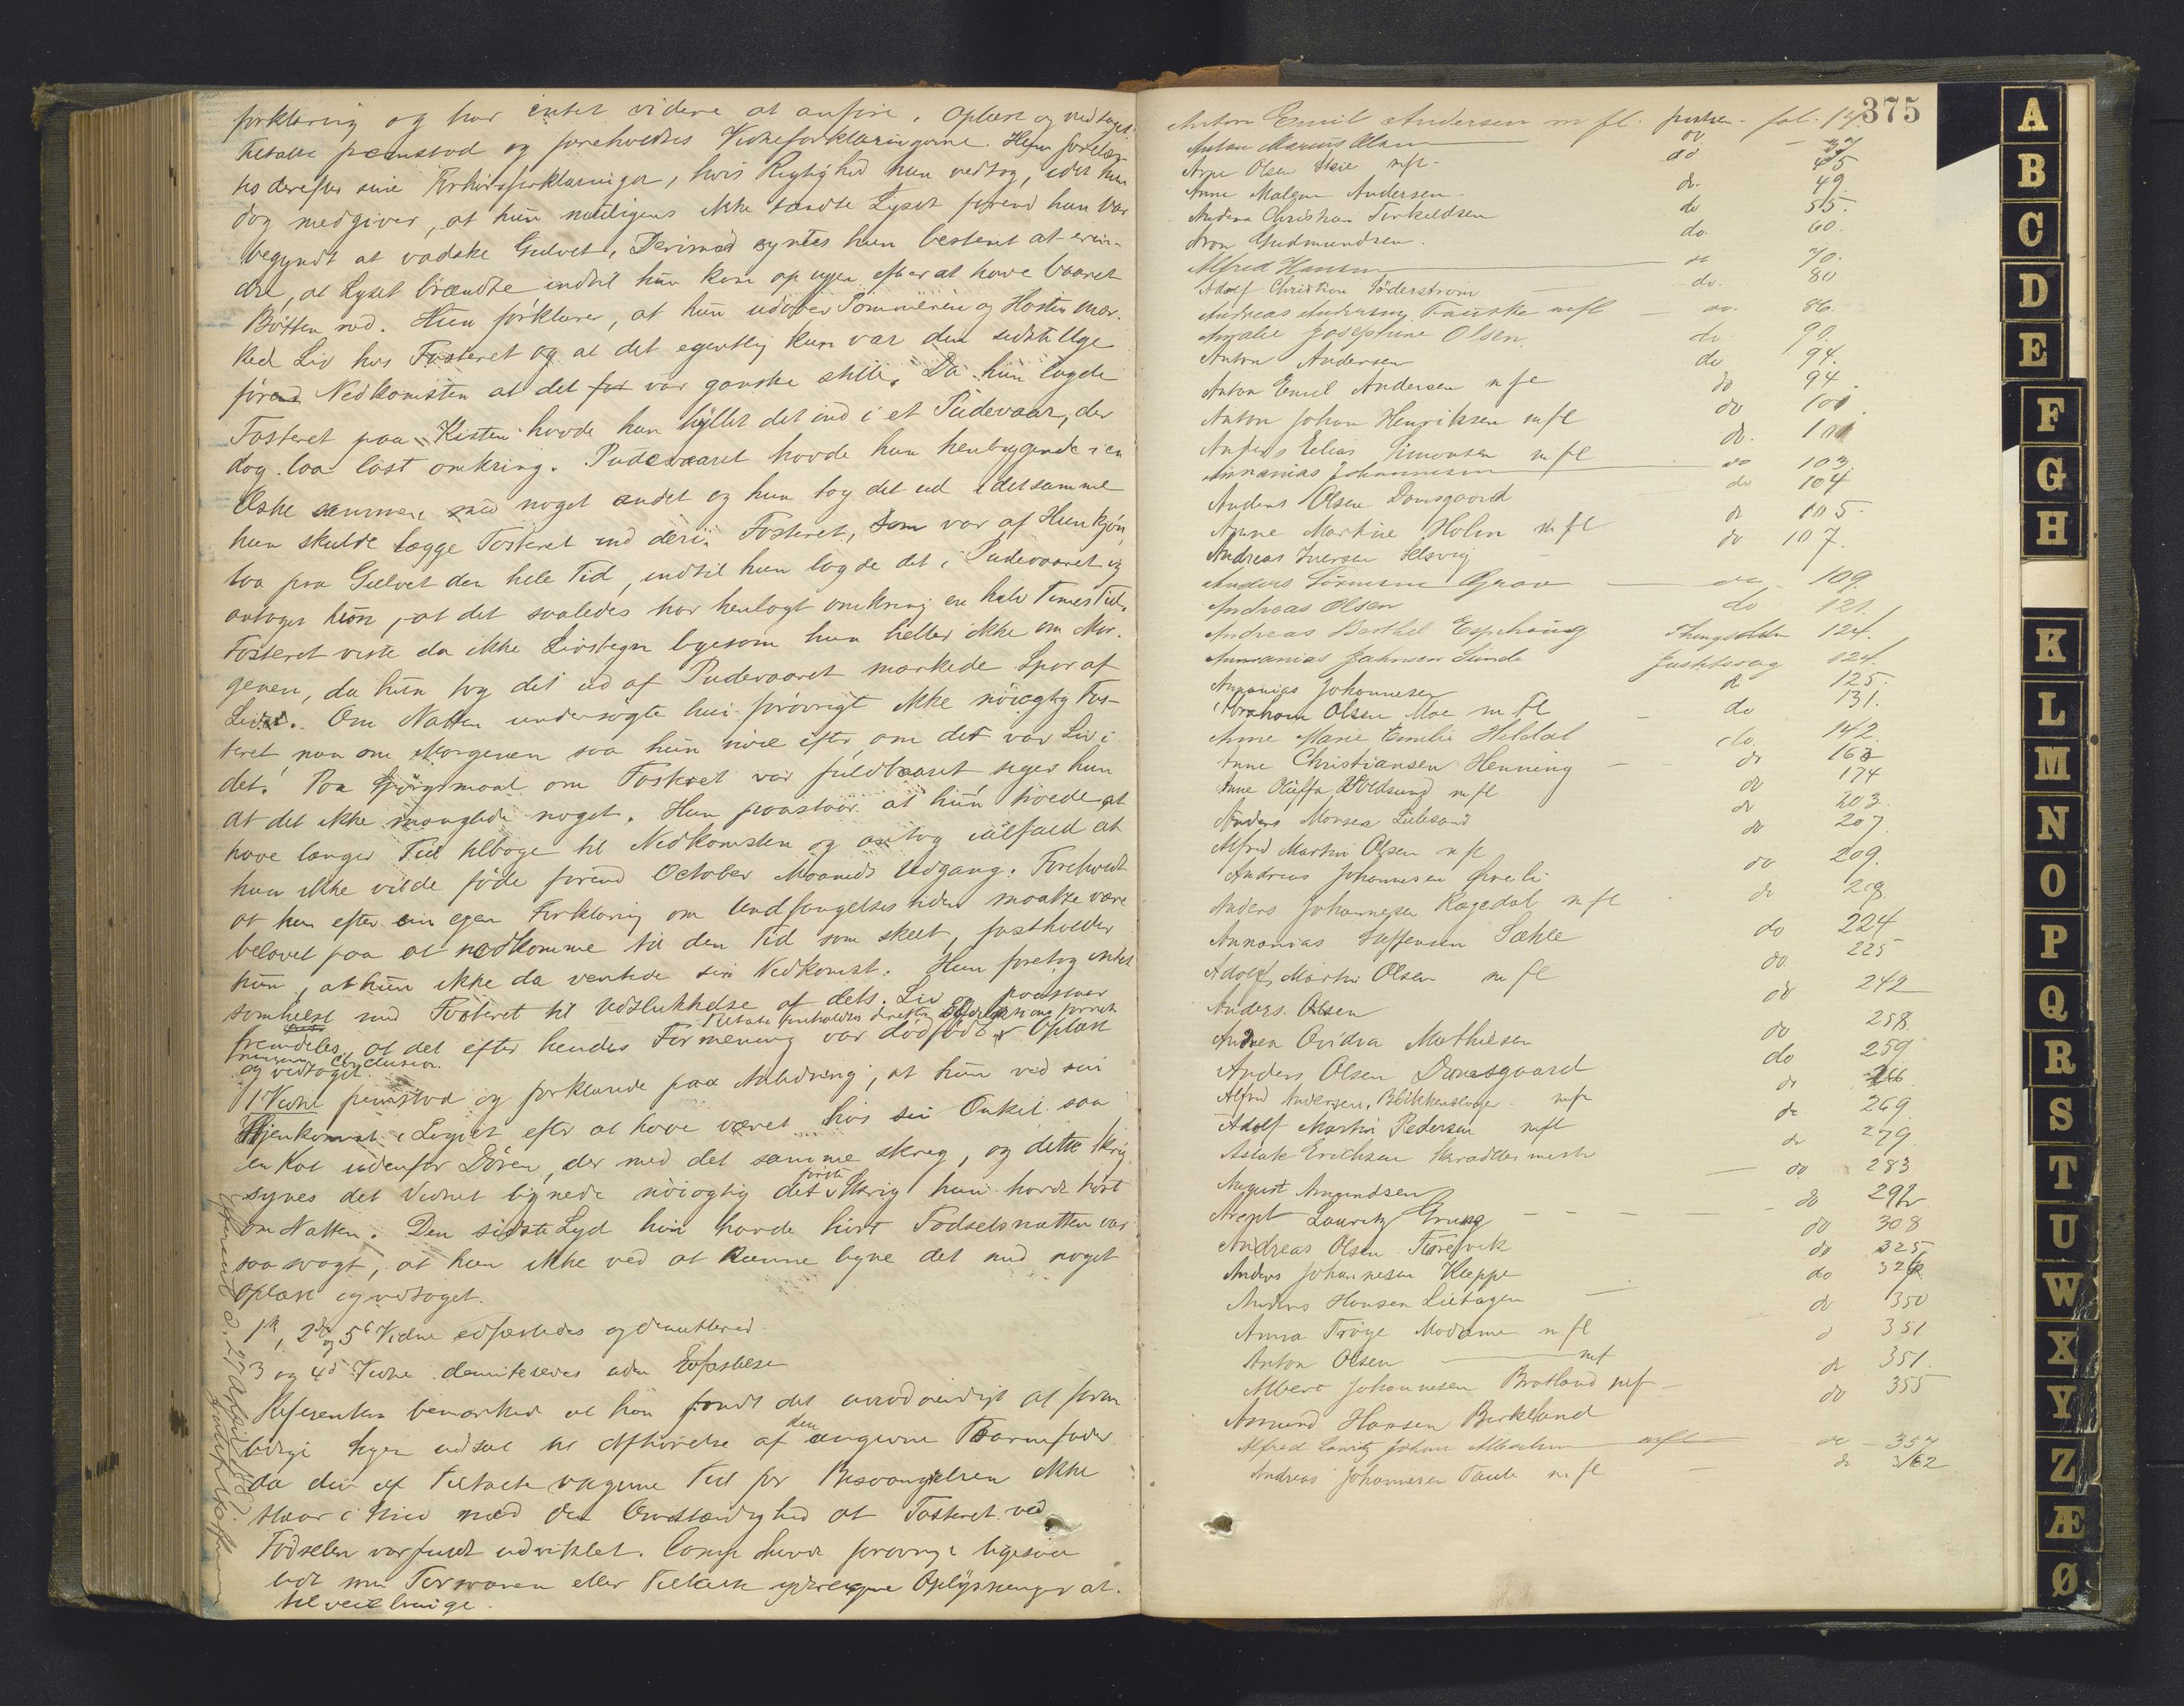 forklaring og har intet videre at anføre. Oplæst og vedtaget.
Tiltalte fremstod og foreholdtes Vidneforklaringerne. Hun forelæg-
tes derefter sine Forhørsforklaringer, hvis Rigtighed hun vedtog, idet hun
dog medgiver, at hun muligens ikke tændte Lyset førend hun var
begyndt at vadske Gulvet. Derimod syntes hun bestemt at erin-
dre, at Lyset brændte indtil hun kom op igjen efterat have baaret
Bøtten ned. Hun forklarer, at hun udover Sommeren og Høsten mær-
ked Liv hos Fosteret og at det egentlig kun var den sidste Uge
førend Nedkomsten at det for var ganske stille. Da hun lagde
Fosteret paa Kisten havde hun hyllet det ind i et Pudevaar, der
dog laa løst omkring. Pudevaaret havde hun henliggende i en
Æske sammen med noget andet og hun tog det ud i detsamme
hun skulde lægge Fosteret ind deri. Fosteret, som var af Hunkjøn,
laa paa Gulvet den hele Tid, indtil hun lagde det i Pudevaaret og
antager hun, at det saaledes har henlagt omkring en halv Times Tid.
Fosteret viste da ikke Livstegn ligesom hun heller ikke om Mor-
genen, da hun tog det ud af Pudevaaret mærkede Spor af
Livet. Om Natten undersøgte hun forøvrigt ikke nøiagtig Fos-
teret men om Morgenen saa hun nøie efter, om det var Liv i
det. Paa Spørgsmaal om Fosteret var fuldbaaret siger hun
at det ikke manglede noget. Hun paastaar at hun troede at
have længer Tid tilbage til Nedkomsten og antog ialfald at
hun ikke vilde føde førend October Maaneds Udgang. Foreholdt
at hun efter sin egen Forklaring om Undfangelsestiden maatte være
belavet paa at nedkomme til den Tid som skeet, fastholder
hun, at hun ikke da ventede sin Nedkomst. Hun foretog intet
somhelst med Fosteret til Udslukkelse af dets Liv paastaar
fremdeles, at det efter hendes Formening var dødfødt. Oplæst
og vedtaget.
1 Vidne fremstod og forklarede paa Anledning, at hun ved sin
Hjemkomst i Logiet efter at have været hos sin Onkel saa
en Kat udenfor Døren, der med det samme skreg, og dette Skrig
synes det Vidnet lignede nøiagtig det første Skrig hun havde hørt
om Natten. Den sidste Lyd hun havde hørt Fødselsnatten var
saa svagt, at hun ikke ved at kunne ligne det med noget
Oplæst og vedtaget.
1ste, 2det og 5te Vidne edfæstedes og demitteredes
3 og 4de Vidne demitteredes uden Edfæstelse
Referenten bemærked at han fandt det unødvendigt at frem
Sagen udsat til Afhørelse af den angivne Barnefader
da den af Tiltalte Tid for Besvangrelsen ikke
staar i Strid med den Omstændighed at Fosteret ved
Fødselen var fuldt udviklet. forøvrigt ligesaa
lidt som Forsvaren eller Tiltalte yderligere Oplysninger at
tilveiebringe.
375
Anton Emil Andersen m fl. fol. 19
Anton Marius Olsen do
Arne Olsen m fl. do 45
Anne Malene Andersen do 49
Andrea Christian Terkeldsen do 55.
Aron Gudmundsen. do. 60.
Alfred Hansen do 70.
Adolf Christian Söderstrom do. 80
Andreas Andersen Fauske m fl do. 86.
Amalie Josephine Olsen. do 90.
Anton Andersen do 94.
Anton Emil Andersen m fl do 94.
Anton Johan Henriksen m fl do 101.
Anders Elias Simonsen m fl do. 101
Annanias Johannesen do 103
Anders Olsen Damsgaard do 104
Anne Martine Holm m fl do 105
Andreas Iversen Selsvig do 107.
Anders Sørensen Grav do 109.
Andreas Olsen do 121.
Andreas Berthel Espehaug 124.
Annanias Jahnsen Sunde Justitssag 124.
Annanias Johannesen do 125.
Abraham Olsen Moe m fl do 131.
Anne Marie Emilie Heldal do 142.
Anne Christiansen Henning do 163
Anne Voldsund m fl do 174
Anders Monsen Lillesand do 203
Alfred Martin Olsen m fl do 207
Andreas Johannesen do 209.
Anders Johannesen Ragedal m fl do 219.
Annanias Steffensen Sæhle do 224
Adolf Martin Olsen m fl do 225
Anders Olsen do 242
Andrea Ovidia Mathiesen do 258.
Anders Olsen Damsgaard do 259
Alfred Andersen, Blikkenslager m fl do 266
Adolf Martin Pedersen m fl do 269
Aslak Erichsen Skraddermester do 279
August Amundsen do 283
Arent Lauritz Grung do 292
Andreas Olsen Torevik do 308
Anders Johannesen Kleppe do 325
Anders Hansen Liehagen do 326
Anna Frøye Madame m fl do 350
Anton Olsen m f do 351
Albert Johannesen Bratland m f do 351.
Amund Hansen Birkeland do 355
Alfred Lauritz Johan Albertsen m fl do 357
Andreas Johannesen Taule m fl do 362
A
B
C
D
E
F
G
H
K
L
M
N
O
P
Q
R
S
T
U
W
X
Y
Z
Æ
Ø